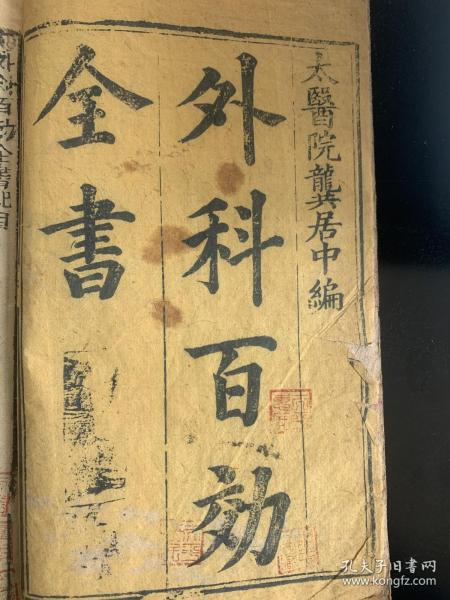 太醫院龔居中編
外科百効
全書
孔夫子旧书网
www.kongfz.com